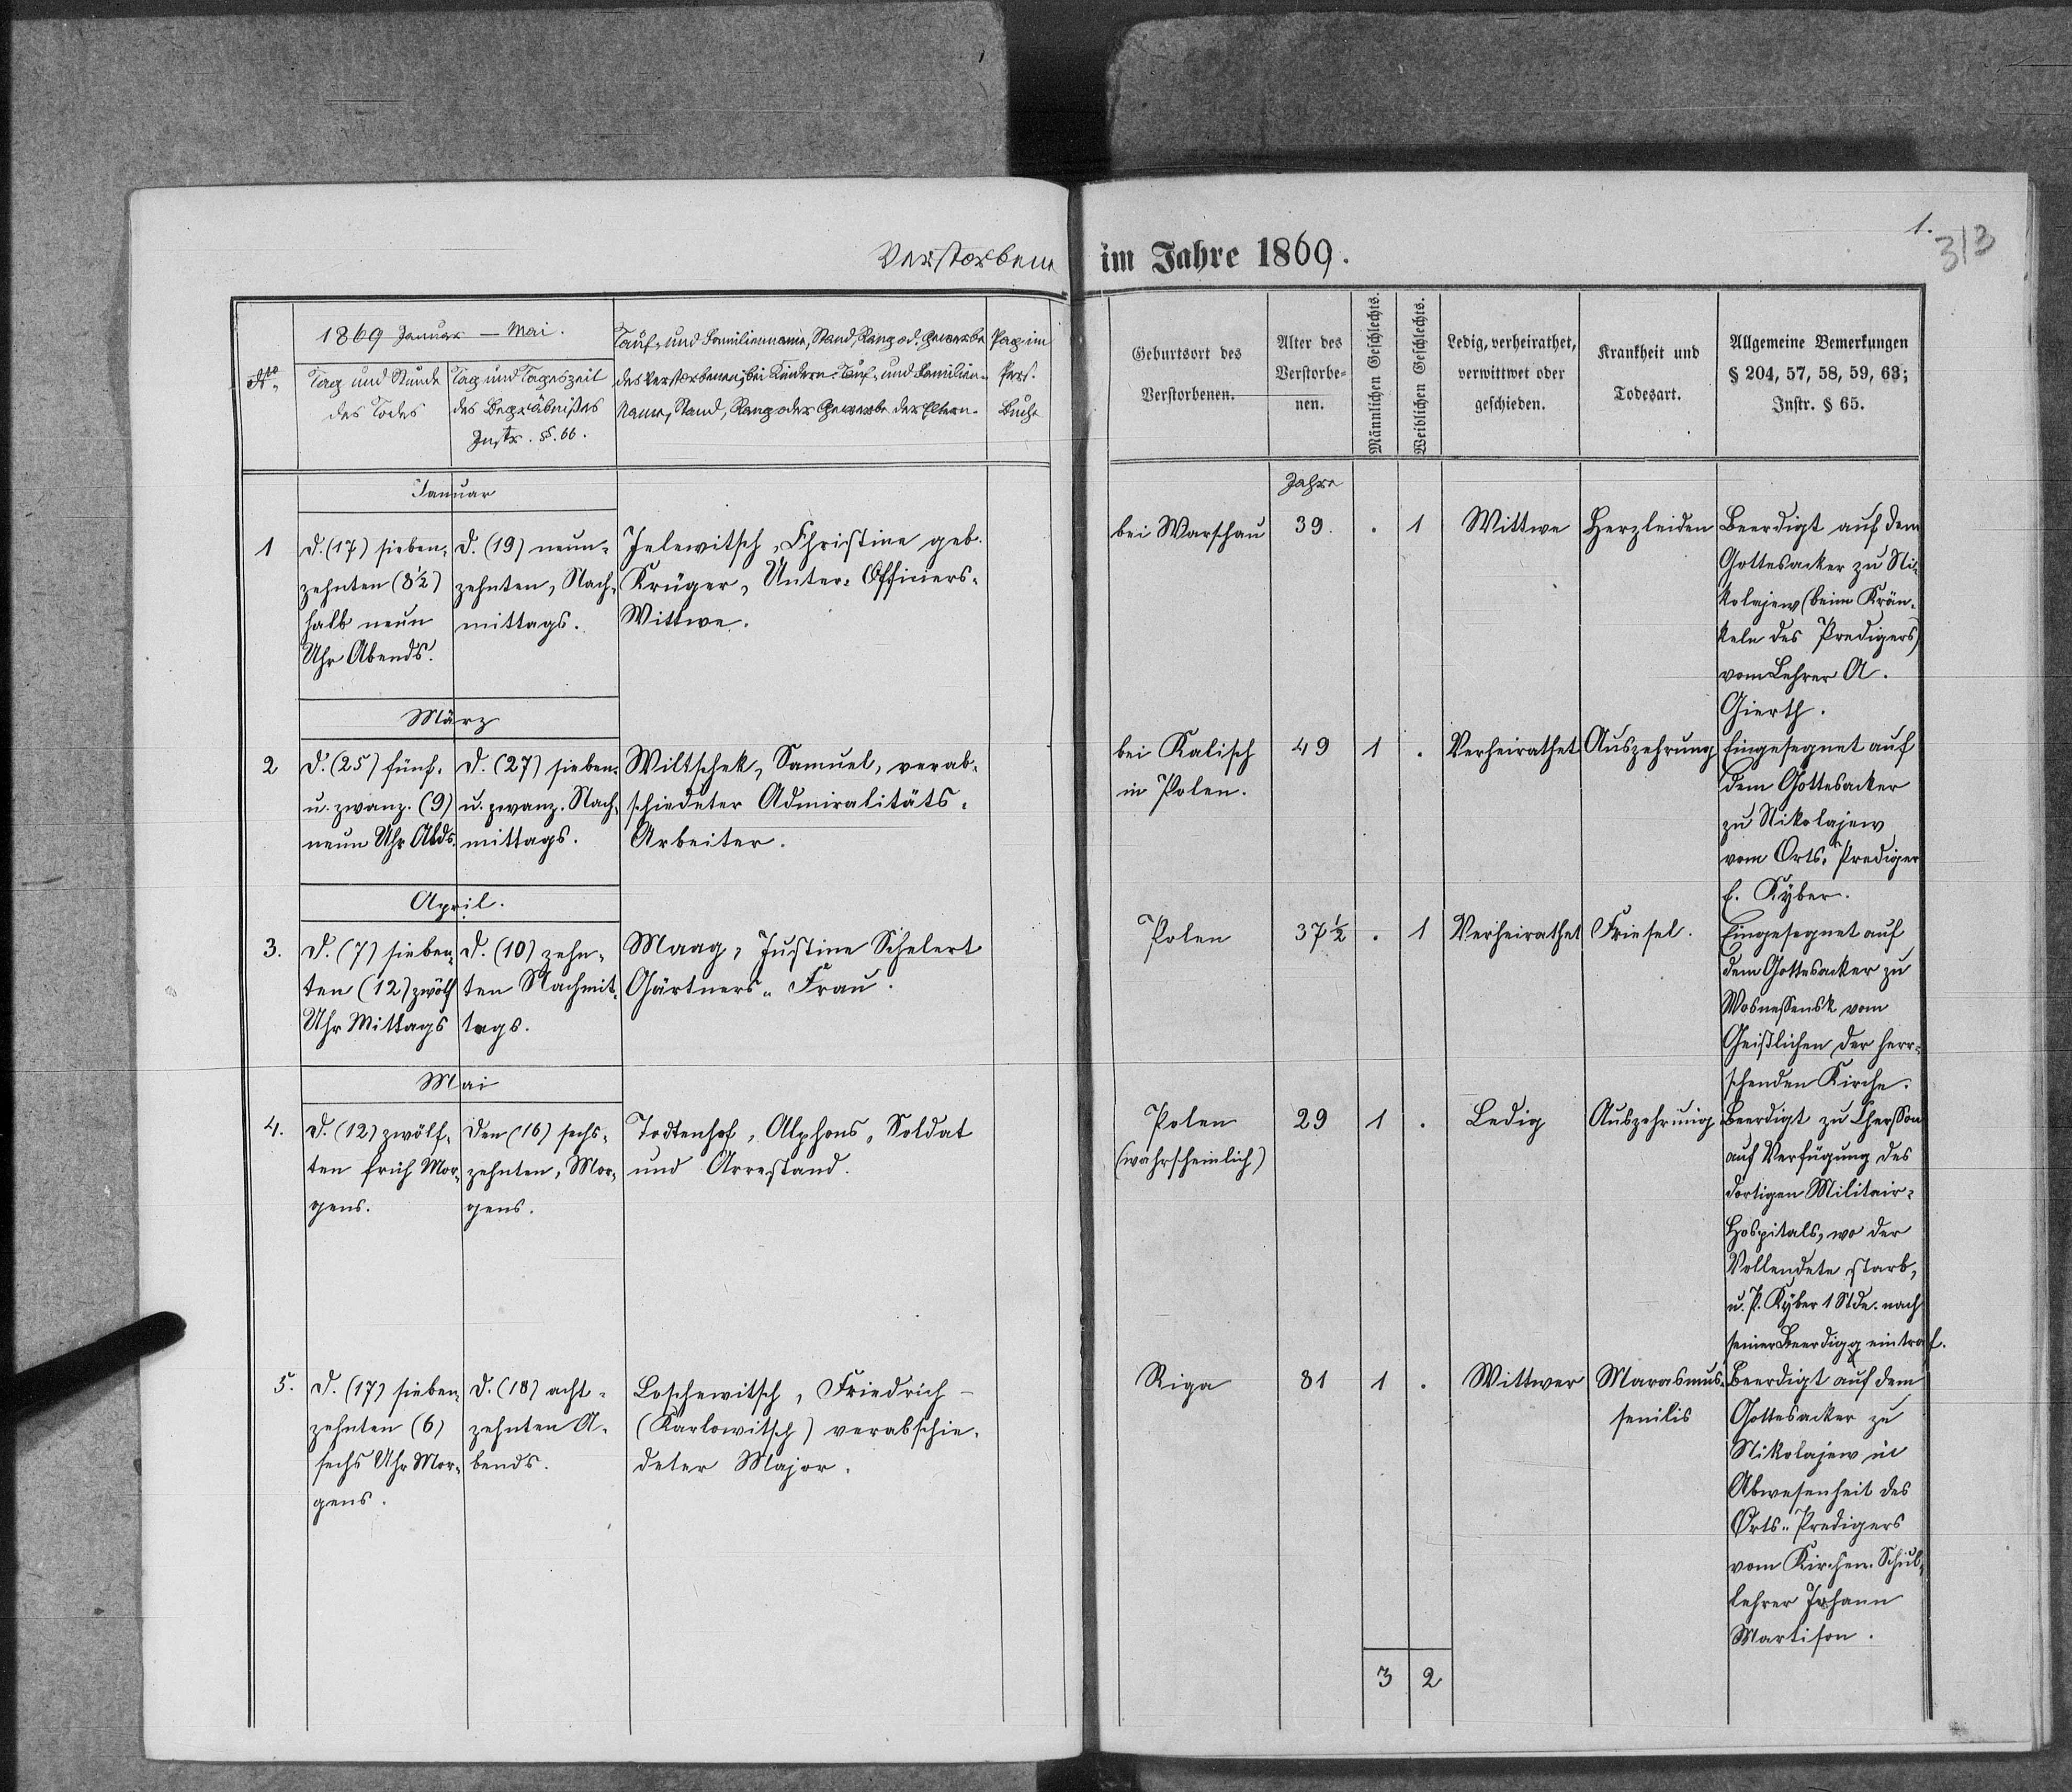 Verstorbene im Jahre 1869.
1.
313
No
1869 Januar — Mai.
Tag und Stunde
des Todes
Tag und Tageszeit
des Begräbnißes
Instr. §. 66.
Tauf- und Familienname, Stand, Rang od. Gewerbe
des Verstorbenen; bei Kindern: Tauf- und Familien-
Name, Stand, Rang oder Gewerbe der Eltern.
Pag im
Pers.
Buche
Geburtsort des
Verstorbenen.
Alter des
Verstorbe-
nen.
Männlichen Geschlechts.
Weiblichen Geschlechts.
Ledig, verheirathet,
verwittwet oder
geschieden.
Krankheit und
Todesart.
Allgemeine Bemerkungen
§ 204, 57, 58, 59, 63;
Instr. § 65.
Januar
Jahre
1
d. (17) sieben-
zehnten (8½)
halb neun
Uhr Abends.
d. (19) neun-
zehnten, Nach-
mittags.
Jelewitsch, Christine geb.
Krüger, Unter-Officiers-
Wittwe.
bei Warschau
39.
.
1
Wittwe
Herzleiden
Beerdigt auf dem
Gottesacker zu Ni-
kolajew (beim Krän-
keln des Predigers)
vom Lehrer A.
Gierth.
März
2
d. (25) fünf-
u. zwanz. (9)
neun Uhr Abds.
d. (27) sieben-
u. zwanz. Nach-
mittags.
Wiltschek, Samuel, verab-
schiedeter Admiralitäts-
Arbeiter.
bei Kalisch
in Polen.
49
1
.
Verheirathet
Auszehrung
Eingesegnet auf
dem Gottesacker
zu Nikolajew
vom Orts-Prediger
E. Kyber.
April.
3.
d. (7) sieben-
ten (12) zwölf
Uhr Mittags
d. (10) zehn-
ten Nachmit-
tags.
Maag, Justine Schelert
Gärtners-Frau.
Polen
37½
.
1
Verheirathet
Friesel.
Eingesegnet auf
dem Gottesacker zu
Wosnessensk vom
Geistlichen der herr-
schenden Kirche.
Mai
4.
d. (12) zwölf-
ten früh Mor-
gens.
den (16) sechs-
zehnten, Mor-
gens.
Todtenhof, Alphons, Soldat
und Arrestand.
Polen
(wahrscheinlich)
29
1
.
Ledig
Auszehrung
Beerdigt zu Chersson
auf Verfügung des
dortigen Militair-
Hospitals, wo der
Vollendete starb,
u. P. Kyber 1 Stde. nach
seiner Beerdigg eintraf.
5.
d. (17) sieben-
zehnten (6)
sechs Uhr Mor-
gens.
d. (18) acht-
zehnten A-
bends.
Loschewitsch, Friedrich -
(Karlowitsch) verabschie-
deter Major.
Riga
81
1
.
Wittwer
Marasmus-
senilis
Beerdigt auf dem
Gottesacker zu
Nikolajew in
Abwesenheit des
Orts-Predigers
vom Kirchen-Schul-
lehrer Johann
Martison.
3
2